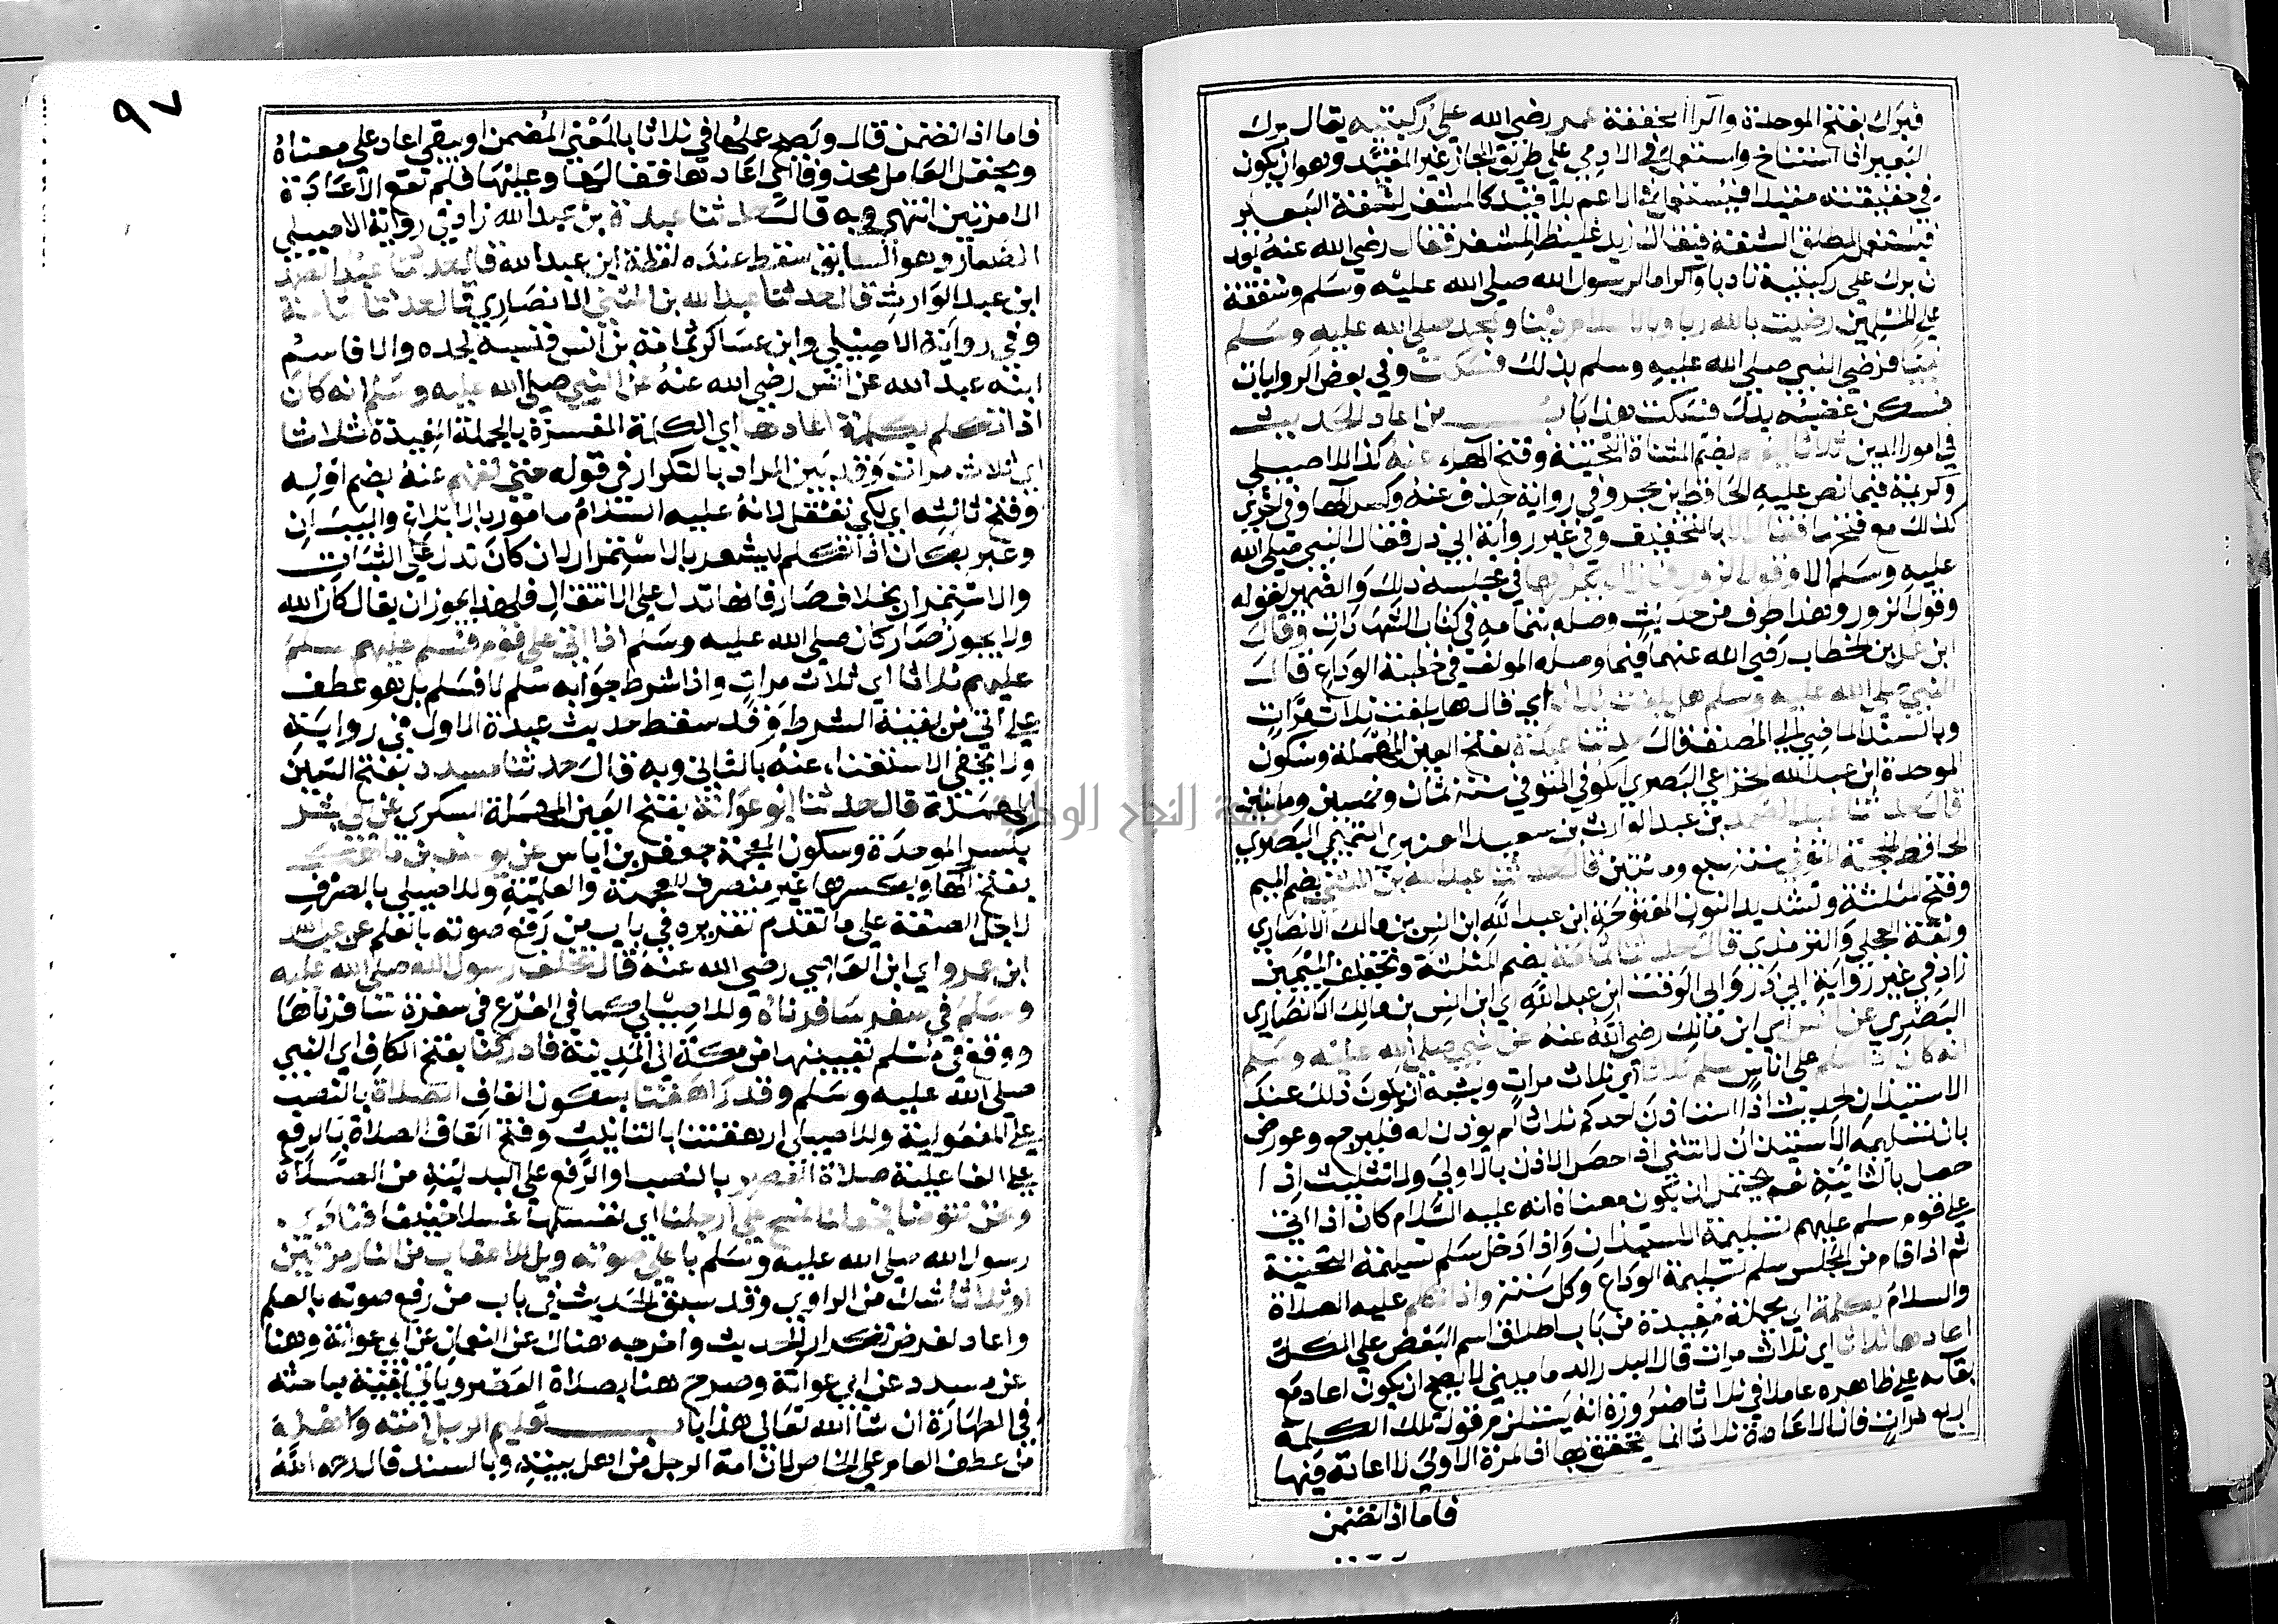 فبرك بفتح الموحدة والراء المخففة عمر رضي الله على ركبتيه يقال برك
البعير اذا استناخ واستعمل في الادمي على طريق المجاز غير المقيد وهو ان يكون
في حقيقته مقيدا فيستعمل في الاعم بلا قيد كالمشفر لشفة البعير
فيستعمل لمطلق الشفة فيقال زيد غليظ المشفر فقال رضي الله عنه بعد
ان برك على ركبتيه تادبا واكراما لرسول الله صلى الله عليه وسلم وشفقة
على المسلمين رضيت بالله ربا وبالاسلام دينا وبمحمد صلى الله عليه وسلم
نبيا فرضي النبي صلى الله عليه وسلم بذلك فسكت وفي بعض الروايات
فسكن غضبه بدل فسكت هذا باب من اعاد الحديث
في امور الدين ثلاثا ليفهم بضم المثناة التحتية وفتح الهاء عنه كذا للاصيلي
وكريمة فيما نص عليه الحافظ ابن حجر وفي رواية حذف عنه وكسر الهاء وفي اخرى
كذلك مع فتحها فقال الا بالتخفيف وفي غير رواية ابي ذر فقال النبي صلى الله
عليه وسلم الا وقول الزور فما زال يكررها في مجلسه ذلك والضمير لقوله
وقول الزور وهذا طرف من حديث وصله بتمامه في كتاب الشهادات وقال
ابن عمر بن الخطاب رضي الله عنهما فيما وصله المولف في خطبة الوداع قال
النبي صلى الله عليه وسلم هل بلغت ثلاثا اي قال هل بلغت ثلاث مرات
وبالسند الماضي الى المصنف قال حدثنا عبدة بفتح العين المهملة وسكون
الموحدة ابن عبد الله الخزاعي البصري الكوفي المتوفي في سنة ثمان وخمسين ومائتين
قال حدثنا عبد الصمد بن عبد الوارث بن سعيد العنبري التميمي البصري
الحافظ الحجة المتوفي سنة سبع ومائتين قال حدثنا عبد الله بن المثنى بضم الميم
وفتح المثلثة وتشديد النون المفتوحة ابن عبد الله ابن انس بن مالك الانصاري
وثقه العجلي والترمذي قال حدثنا ثمامة بضم المثلثة وتخفيف الميمين
زاد في غير رواية ابي ذر وابي الوقت ابن عبد الله اي ابن انس بن مالك الانصاري
البصري عن انس اي ابن مالك رضي الله عنه عن النبي صلى الله عليه وسلم
انه كان اذا سلم على اناس سلم ثلاثا اي ثلاث مرات ويشبه ان يكون ذلك عند
الاستيذان لحديث اذا استاذن احدكم ثلاثا فلم يوذن له فليرجع وعورض
بان تسليمة الاستيذان لا تثنى اذا حصل الاذن بالاولى ولا تثلث اذا
حصل بالثانية نعم يحتمل ان يكون معناه انه عليه السلام كان اذا اتى
على قوم سلم عليهم تسليمة الاستيذان واذا دخل سلم تسليمة التحية
ثم اذا قام من المجلس سلم تسليمة الوداع وكل سنة واذا تكلم عليه الصلاة
والسلام بكلمة اي بجملة مفيدة من باب اطلاق اسم البعض على الكل
اعادها ثلاثا اي ثلاث مرات قال البدر الدماميني لا يصح ان يكون اعاد مع
بقائه على ظاهره عاملا في ثلاثا ضرورة انه يستلزم قول تلك الكلمة
اربع مرات فان الاعادة ثلاثا انما يتحقق بها اذ المرة الاولى لا اعادة فيها
فاما اذا تضمن
٩٧
فاما اذا تضمن قال ويصح عملها في ثلاثا بالمعنى المضمن او يبقى اعاد على معناه
ويحتمل العامل محذوفا اي اعادها فقالها وعليها فلم تقع الاعادة
الا مرتين انتهى وبه قال حدثنا عبدة بن عبد الله زاد في رواية الاصيلي
الصفار وهو السابق سقط عنده لفظة ابن عبد الله قال حدثنا عبد الصمد
ابن عبد الوارث قال حدثنا عبد الله بن المثنى الانصاري قال حدثنا ثمامة
وفي رواية الاصيلي وابن عساكر ثمامة بن انس فنسبه لجده والا فاسم
ابنه عبد الله عن انس رضي الله عنه عن النبي صلى الله عليه وسلم انه كان
اذا تكلم بكلمة اعادها اي الكلمة المفسرة بالجملة المفيدة ثلاثا
اي ثلاث مرات وقد بين المراد بالتكرار في قوله حتى تفهم عنه بضم اوله
وفتح ثالثه اي لكي تعقل لانه عليه السلام مامور بالابلاغ والبيان
وعبر بكان اذا تكلم ليشعر بالاستمرار لان كان تدل على الثبات
والاستمرار بخلاف صار فانها تدل على الانتقال فلهذا يجوز ان يقال كان الله
ولا يجوز صار كان صلى الله عليه وسلم اذا اتى على قوم فسلم عليهم سلم
عليهم ثلاثا اي ثلاث مرات واذا شرط جوابه سلم لا فسلم بل هو عطف
على اتى من بقية الشرط وقد سقط حديث عبدة الاول في رواية
ولا يخفى الاستغناء عنه بالثاني وبه قال حدثنا مسدد بفتح السين
المهملة قال حدثنا ابو عوانة بفتح العين المهملة اليسكري عن ابي بشر
بكسر الموحدة وسكون المعجمة جعفر بن اياس عن يوسف بن ماهك
بفتح الهاء وبكسرها غير منصرف للعجمة والعلمية وللاصيلي بالصرف
لاجل الصفة على ما تقدم تقريره في باب من رفع صوته بالعلم عن عبد الله
ابن عمرو اي ابن العاصي رضي الله عنه قال تخلف رسول الله صلى الله عليه
وسلم في سفر سافرناه وللاصيلي كما في الفرع في سفرة سافرناها
ووقع في مسلم تعيينها من مكة الى المدينة فادركنا بفتح الكاف اي النبي
صلى الله عليه وسلم وقد ارهقنا بسكون القاف الصلاة بالنصب
على المفعولية وللاصيلي ارهقتنا بالتانيث وفتح القاف الصلاة بالرفع
على الفاعلية صلاة العصر بالنصب او الرفع على البدلية من الصلاة
ونحن نتوضا فجعلنا نمسح على ارجلنا اي نغسلها غسلا خفيفا فنادى
رسول الله صلى الله عليه وسلم باعلى صوته ويل للاعقاب من النار مرتين
او ثلاثا شك من الراوي وقد سبق الحديث في باب من رفع صوته بالعلم
واعاد لغرض تكرار الحديث واخرجه هناك عن النعمان عن ابي عوانة وهنا
عن مسدد عن ابي عوانة وصرح هنا بصلاة العصر وياتي بقية مباحثه
في الطهارة ان شا الله تعالى هذا باب تعليم الرجل امته واهله
من عطف العام على الخاص لان امة الرجل من اهل بيته وبالسند قال رحمه الله
جامعة النجاح الوطنية